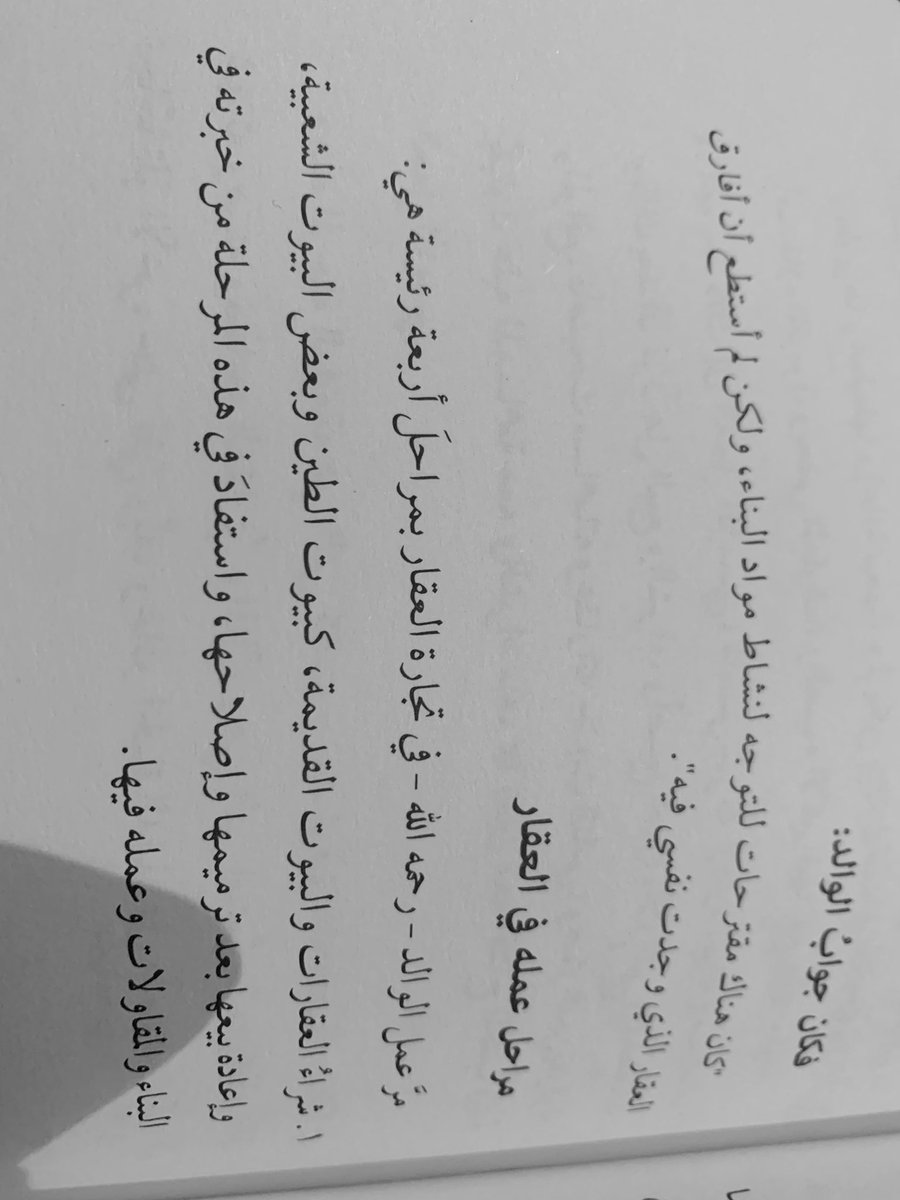 فكان جوابُ الوالد:
"كان هناك مقترحات للتوجه لنشاط مواد البناء، ولكن لم أستطع أن أفارق
العقار الذي وجدت نفسي فيه".
مراحل عمله في العقار
مرَّ عمل الوالد - رحمه الله - في تجارة العقار بمراحلَ أربعة رئيسة هي:
١. شراءُ العقارات والبيوت القديمة، كبيوت الطين وبعض البيوت الشعبية،
وإعادة بيعها بعد ترميمها وإصلاحها، واستفادَ في هذه المرحلة من خبرته في
البناء والمقاولات وعمله فيها.